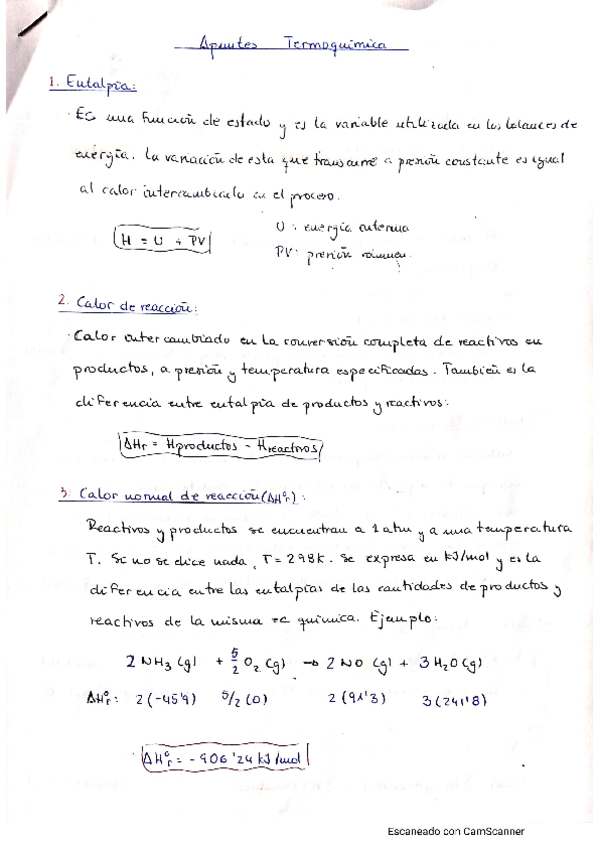 Apuntes Termoquímica
1. Entalpía:
· Es una función de estado y es la variable utilizada en los balances de
energía. La variación de esta que transcurre a presión constante es igual
al calor intercambiado en el proceso.
H = U + PV
U: energía interna
PV: presión volumen.
2. Calor de reacción:
· Calor intercambiado en la conversión completa de reactivos en
productos, a presión y temperatura especificadas. También es la
diferencia entre entalpía de productos y reactivos:
ΔHr = Hproductos - Hreactivos
3. Calor normal de reacción (ΔH°r):
Reactivos y productos se encuentran a 1 atm y a una temperatura
T. Si no se dice nada, T = 298k. Se expresa en kJ/mol y es la
diferencia entre las entalpías de las cantidades de productos y
reactivos de la misma rc química. Ejemplo:
2 NH₃ (g) + 5/2 O₂ (g) → 2 NO (g) + 3 H₂O (g)
ΔH°r: 2(-45'9) 5/2 (0) 2(91'3) 3(241'8)
ΔH°r = -906'24 kJ/mol
Escaneado con CamScanner